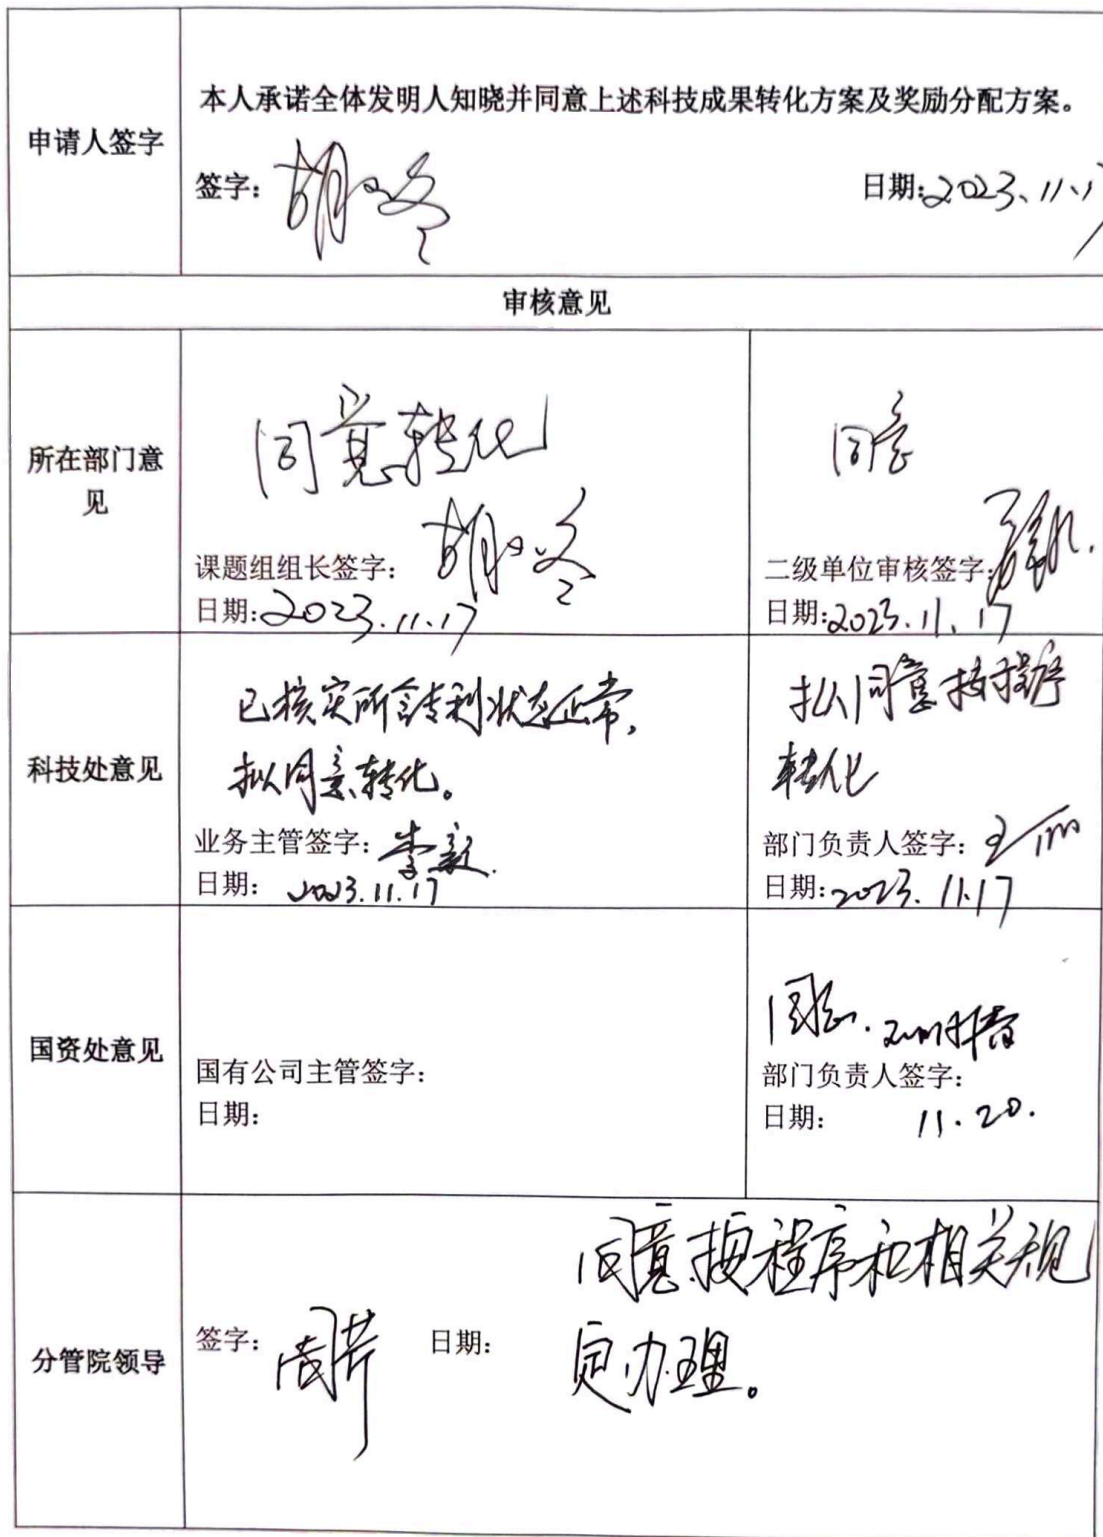 申请人签字
本人承诺全体发明人知晓并同意上述科技成果转化方案及奖励分配方案。
签字：
日期：2023.11.17
审核意见
所在部门意
见
同意转化
课题组组长签字：
日期：2023.11.17
同意
二级单位审核签字：
日期：2023.11.17
科技处意见
已核实所含专利状态正常，
拟同意转化。
业务主管签字：李毅
日期：2023.11.17
拟同意按程序
转化
部门负责人签字：
日期：2023.11.17
国资处意见
国有公司主管签字：
日期：
同意.
部门负责人签字：
日期：11.20.
分管院领导
同意按程序和相关规
签字：
日期：
定办理。